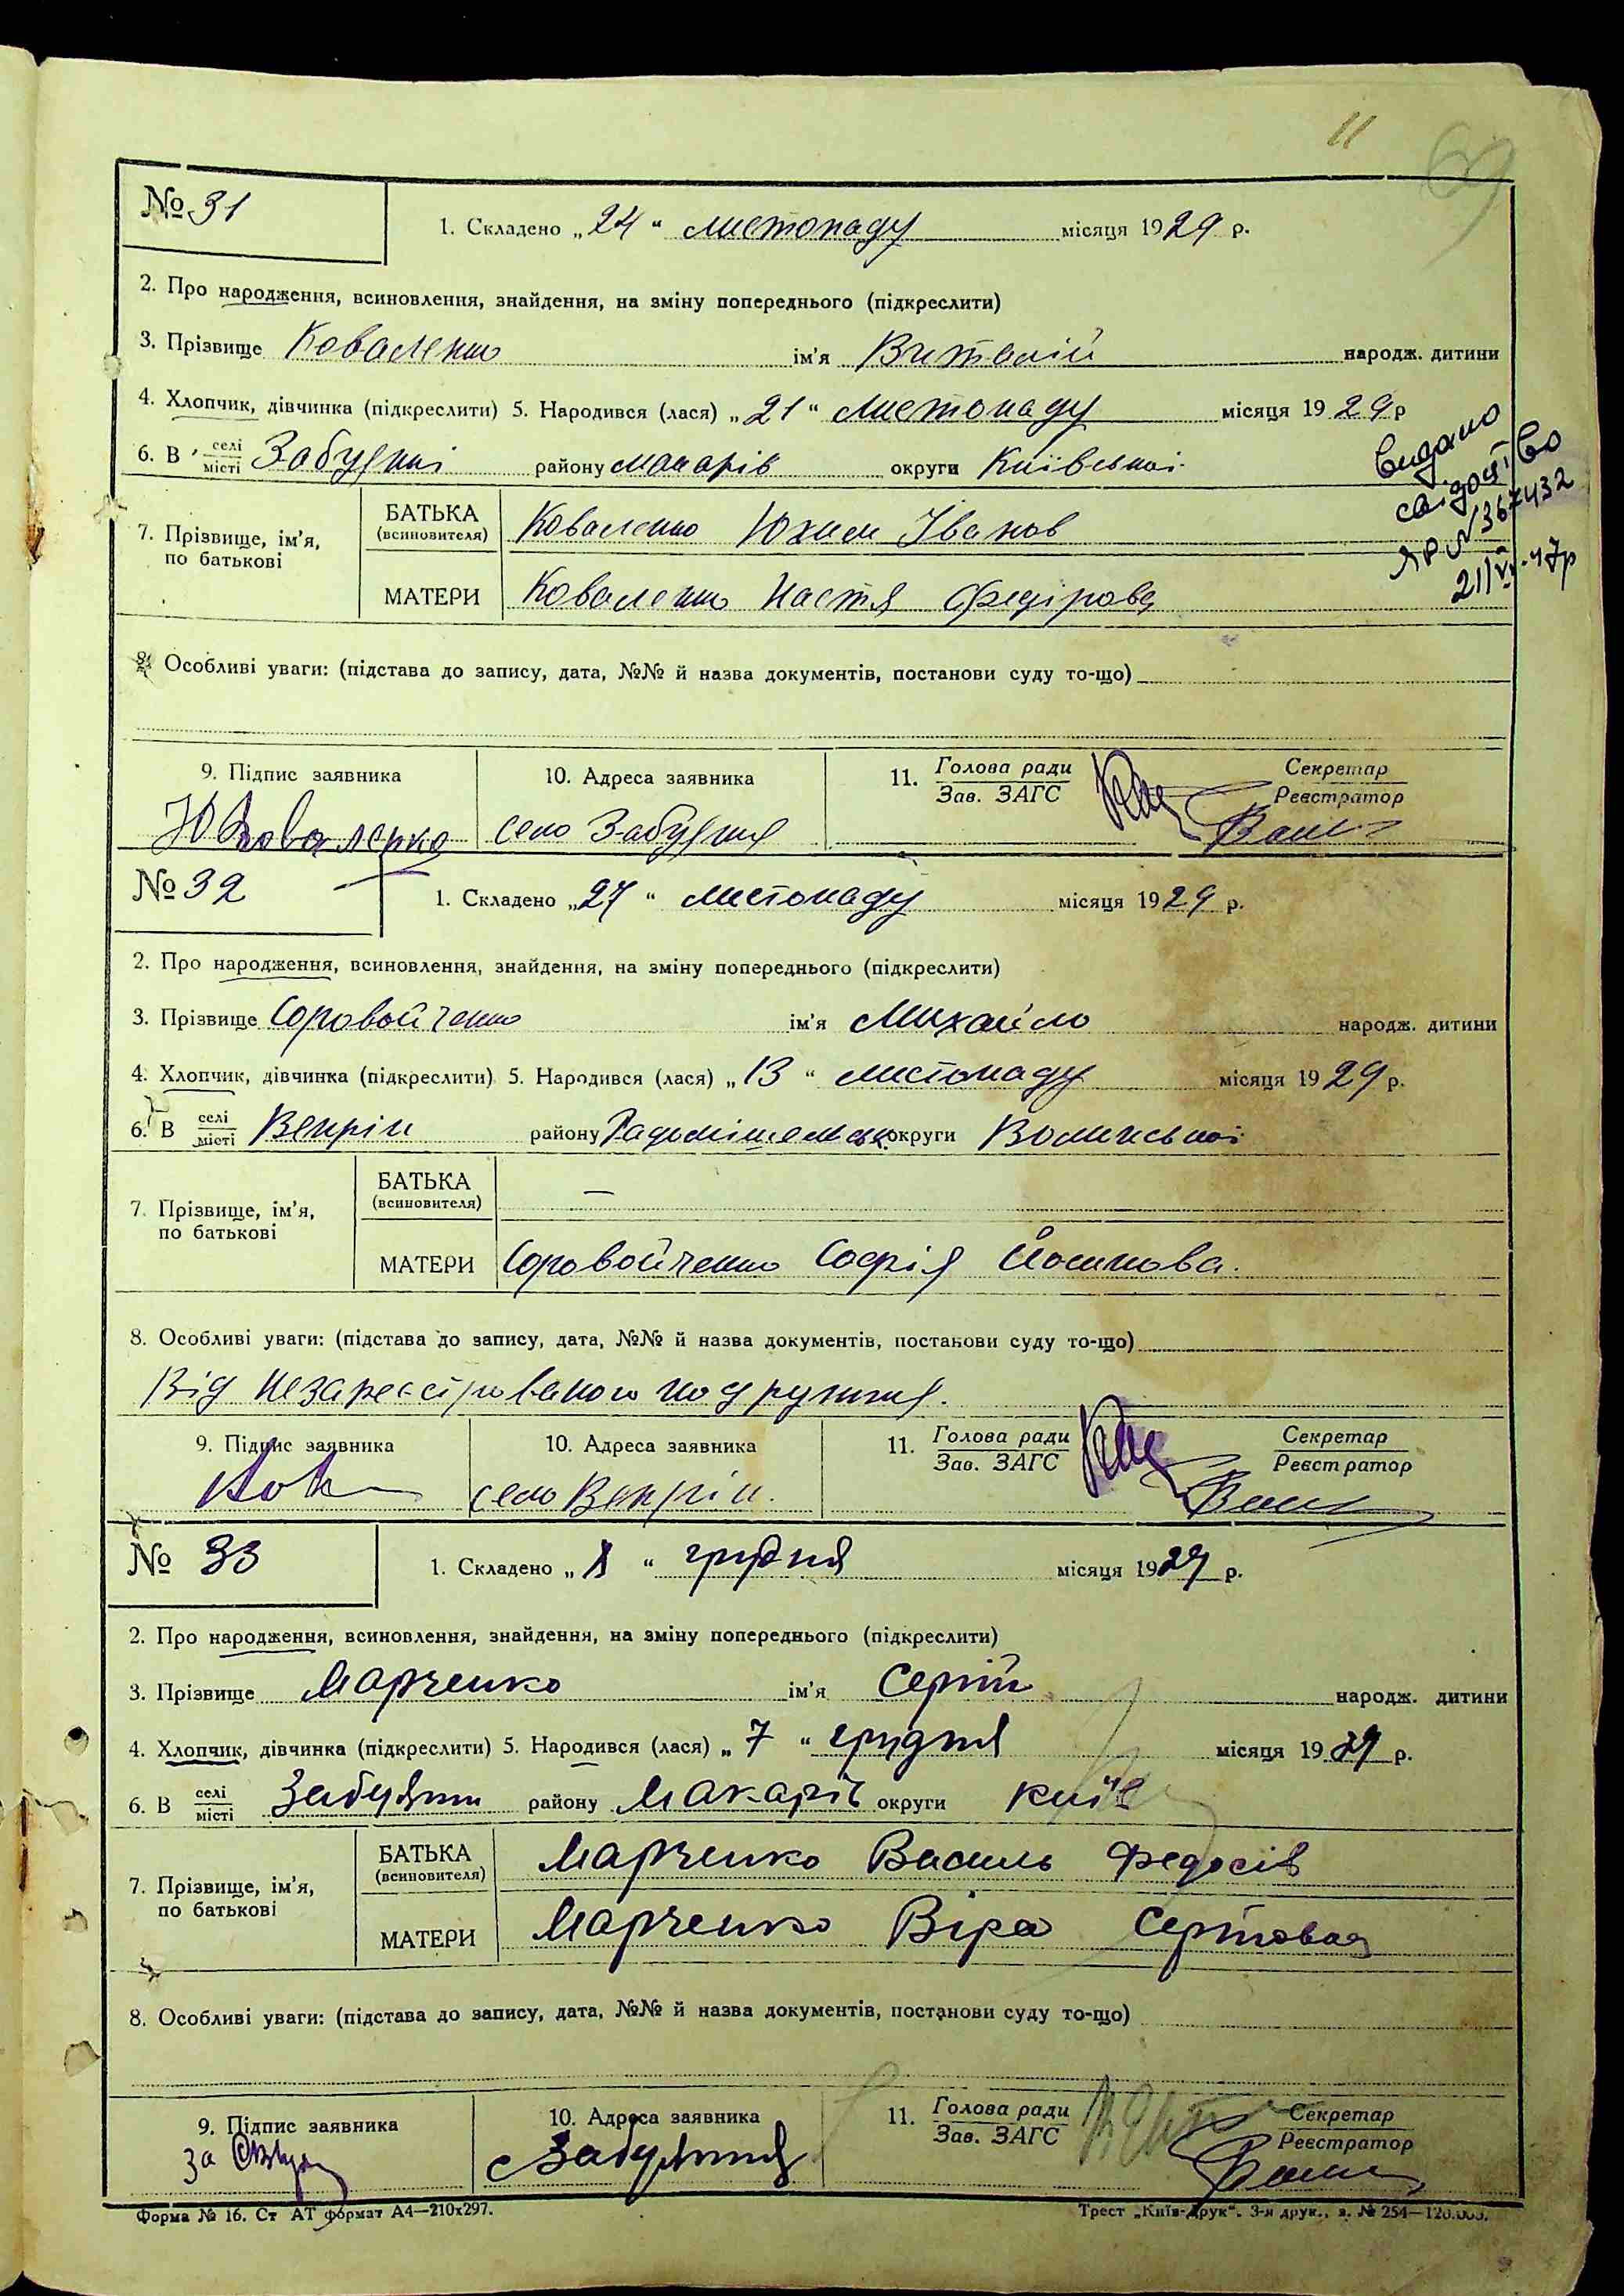 11
69
№ 31
1. Складено „24“ листопаду місяця 1929 р.
2. Про народження, всиновлення, знайдення, на зміну попереднього (підкреслити)
3. Прізвище Коваленко ім'я Виталій народж. дитини
4. Хлопчик, дівчинка (підкреслити) 5. Народився (лася) „21“ листопаду місяця 1929 р
6. В селі місті Забуянні району Макарів округи Київської
Видано
свідоцтво
ЯР № 367432
21/VI-47р
7. Прізвище, ім'я, по батькові
БАТЬКА (всиновителя) Коваленко Юхим Іванов
МАТЕРИ Коваленко Настя Федірова
8. Особливі уваги: (підстава до запису, дата, №№ й назва документів, постанови суду то-що)
9. Підпис заявника 10. Адреса заявника 11. Голова ради Зав. ЗАГС Секретар Реєстратор
Ю Коваленко село Забуяння
№ 32
1. Складено „27“ листопаду місяця 1929 р.
2. Про народження, всиновлення, знайдення, на зміну попереднього (підкреслити)
3. Прізвище Соровойченко ім'я Михайло народж. дитини
4. Хлопчик, дівчинка (підкреслити) 5. Народився (лася) „13“ листопаду місяця 1929 р.
6. В селі місті Веприн району Радомішельськ. округи Волинської
7. Прізвище, ім'я, по батькові
БАТЬКА (всиновителя) —
МАТЕРИ Соровойченко Софія Йосипова.
8. Особливі уваги: (підстава до запису, дата, №№ й назва документів, постанови суду то-що)
Від незареєстрованого подружжя.
9. Підпис заявника 10. Адреса заявника 11. Голова ради Зав. ЗАГС Секретар Реєстратор
село Веприн.
№ 33
1. Складено „8“ грудня місяця 1929 р.
2. Про народження, всиновлення, знайдення, на зміну попереднього (підкреслити)
3. Прізвище Марченко ім'я Сергій народж. дитини
4. Хлопчик, дівчинка (підкреслити) 5. Народився (лася) „7“ грудня місяця 1929 р.
6. В селі місті Забуянні району Макарів округи Київ
7. Прізвище, ім'я, по батькові
БАТЬКА (всиновителя) Марченко Василь Федосів
МАТЕРИ Марченко Віра Сергіовая
8. Особливі уваги: (підстава до запису, дата, №№ й назва документів, постанови суду то-що)
9. Підпис заявника 10. Адреса заявника 11. Голова ради Зав. ЗАГС Секретар Реєстратор
за с Забуяння
Форма № 16. Ст АТ формат А4—210х297.
Трест „Київ-Друк“. 3-я друк., з. № 254—120.000.